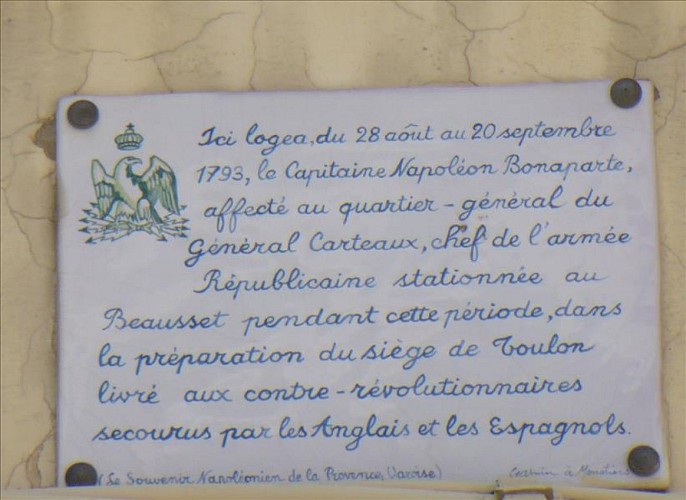 Ici logea, du 28 août au 20 septembre
1793, le Capitaine Napoléon Bonaparte,
affecté au quartier-général du
Général Carteaux, chef de l'armée
Républicaine stationnée au
Beausset pendant cette période, dans
la préparation du siège de Toulon
livré aux contre-révolutionnaires
secourus par les Anglais et les Espagnols.
(Le Souvenir Napoléonien de la Provence, Varoise)
à